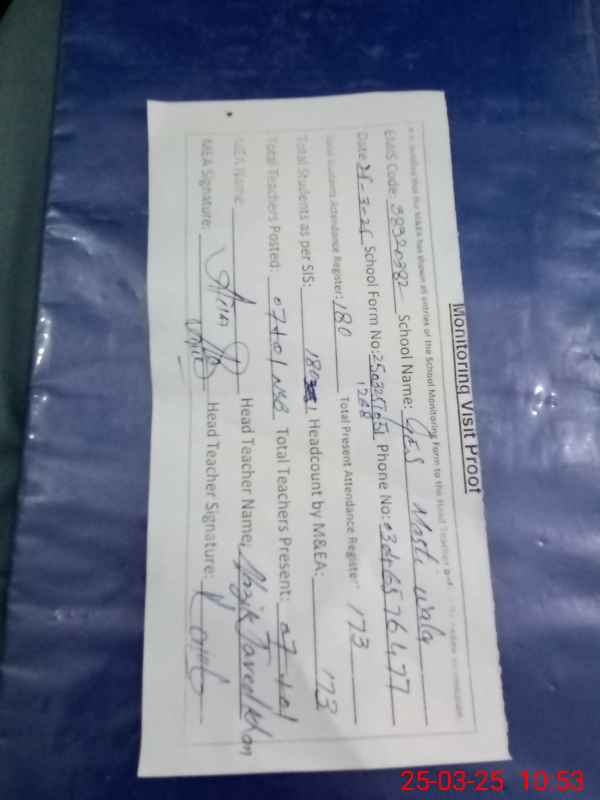 Monitoring Visit Proof
It is certified that the M&EA has shown all entries of the School Monitoring Form to the Head Teacher
EMIS Code: 38320382 School Name: GES Mosti wala
Date 25-3-25 School Form No: 2503251051 Phone No:
1268
Total Students Attendance Register: 180 Total Present Attendance Register: 173
Total Students as per SIS: 180 Headcount by M&EA: 173
Total Teachers Posted: 07+01 NSB Total Teachers Present: 07+01
MEA Name: Head Teacher Name:
MEA Signature: Head Teacher Signature:
25-03-25 10:53